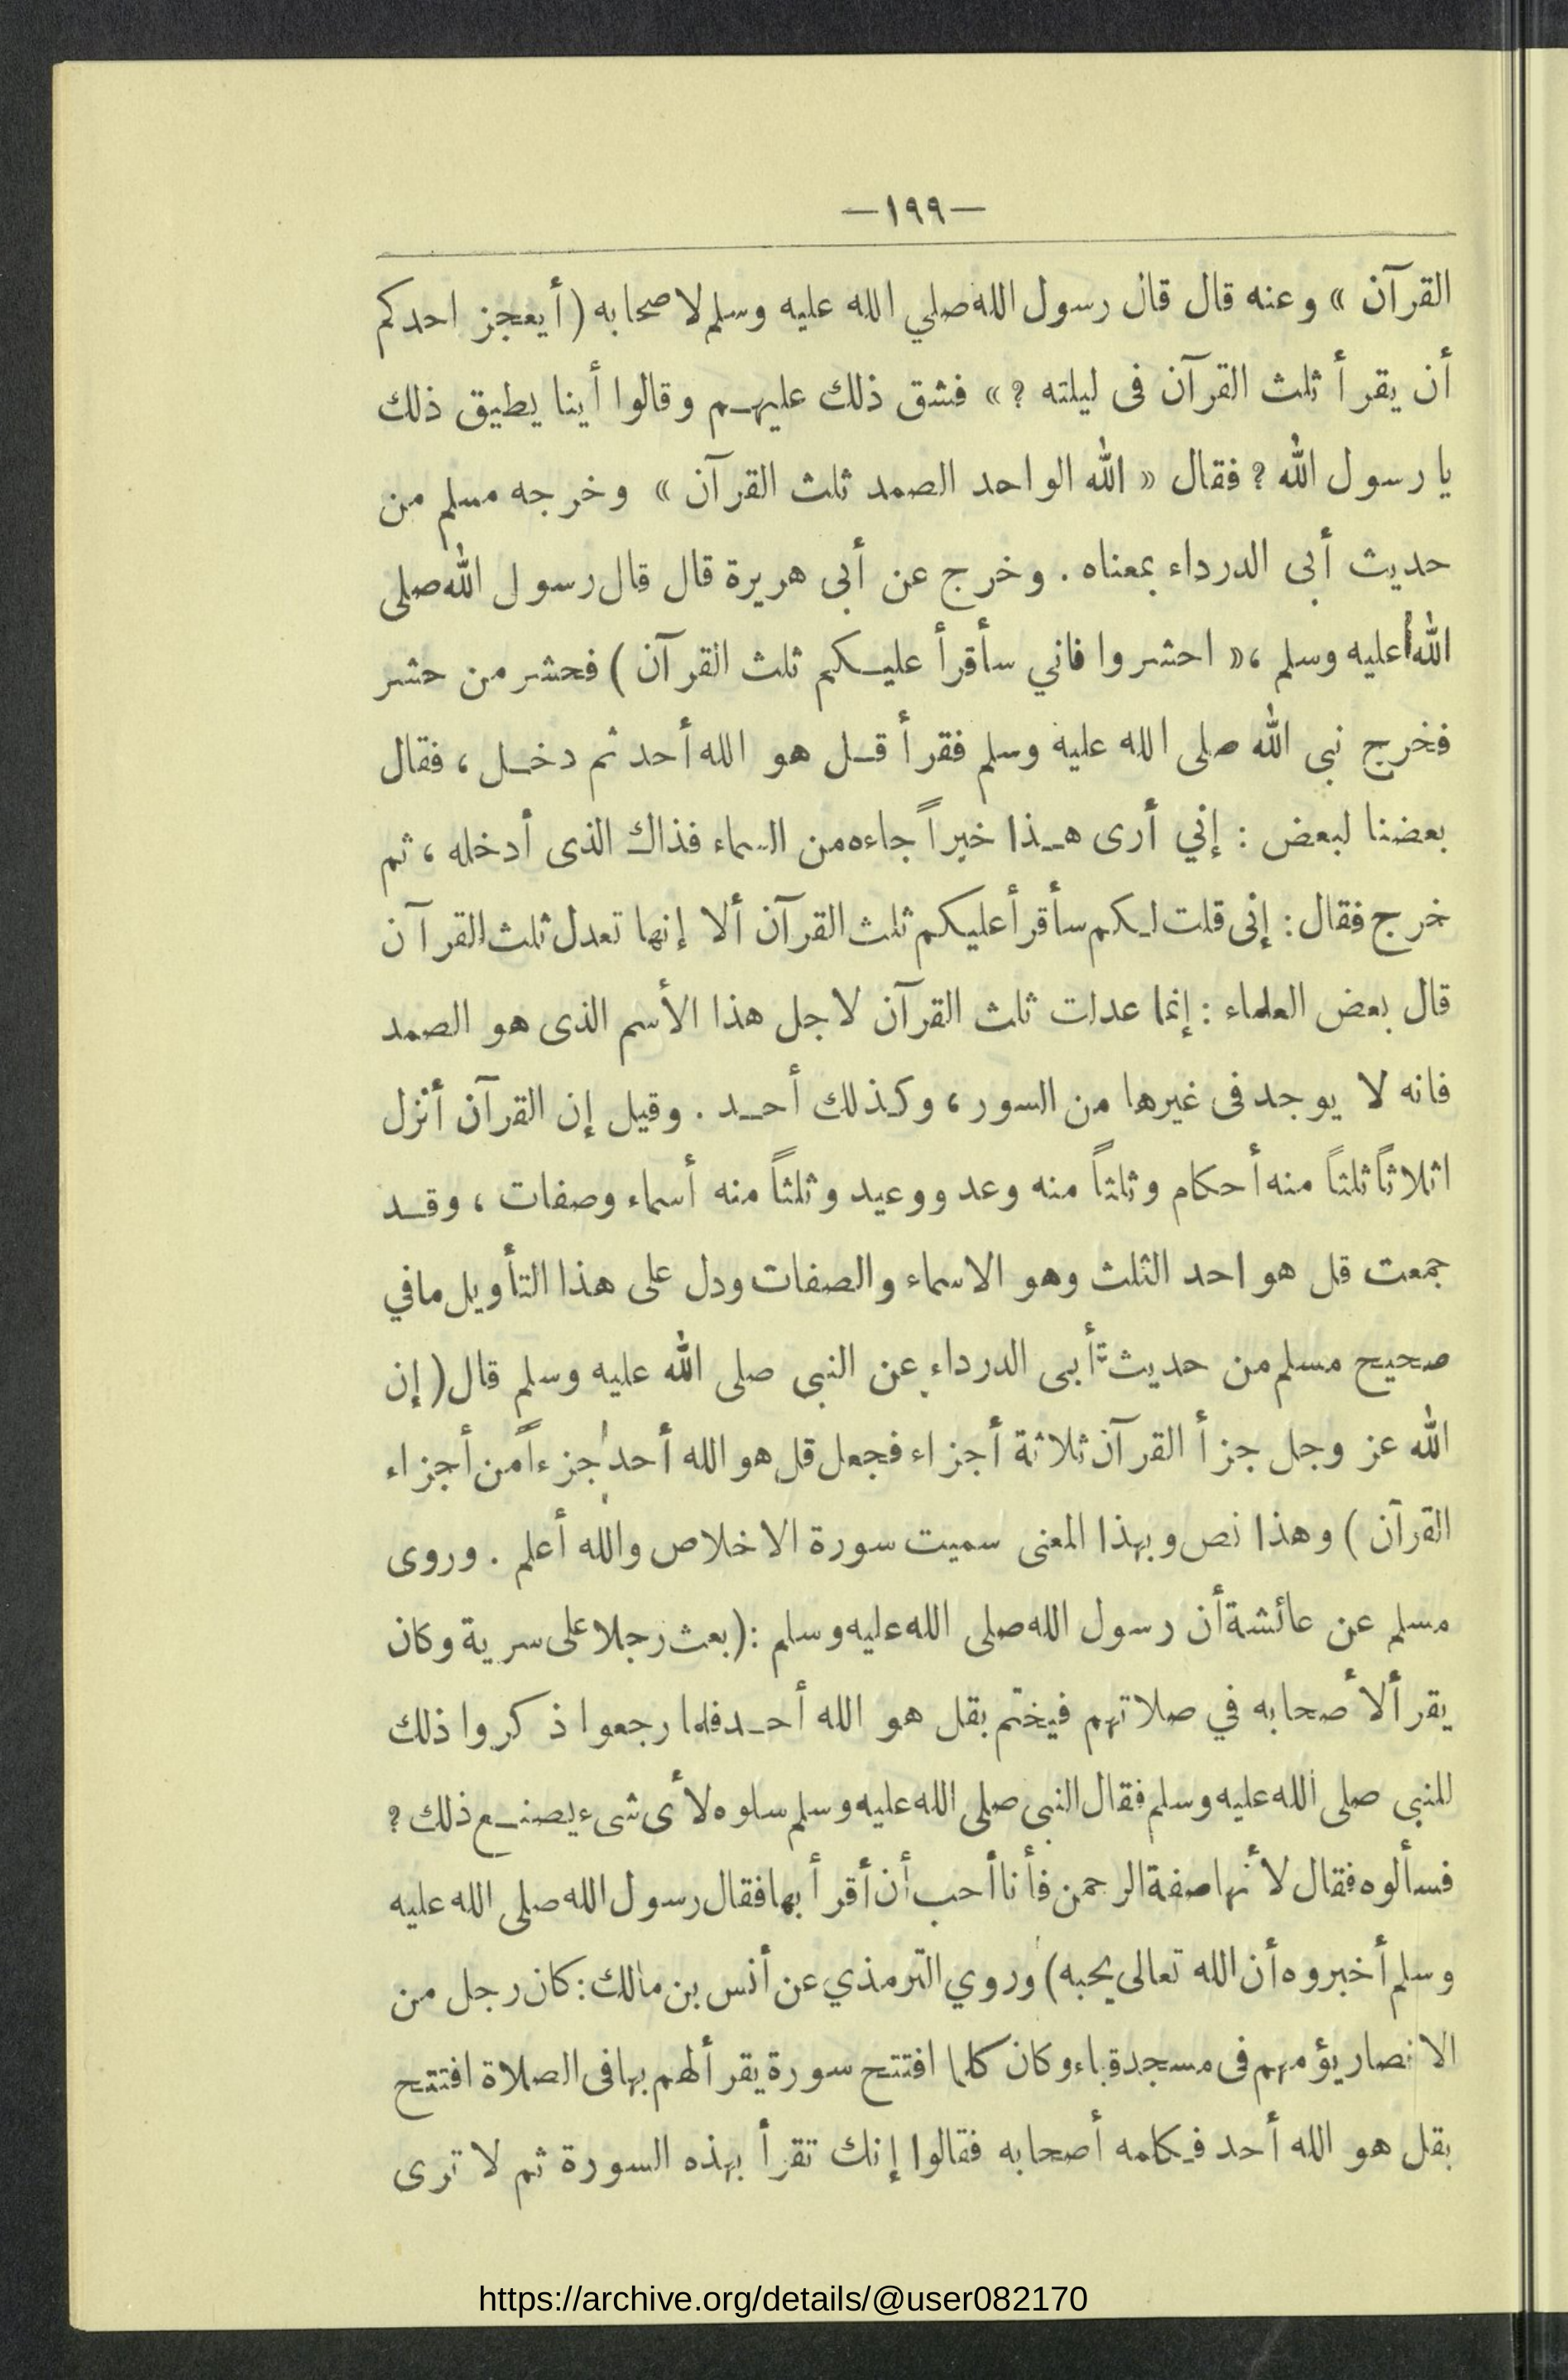 —١٩٩—
القرآن » وعنه قال قال رسول الله صلي الله عليه وسلم لاصحابه (أيعجز احدكم
أن يقرأ ثلث القرآن فى ليلته ؟ » فشق ذلك عليهم وقالوا أينا يطيق ذلك
يا رسول الله ؟ فقال « الله الواحد الصمد ثلث القرآن » وخرجه مسلم من
حديث أبى الدرداء بمعناه . وخرج عن أبى هريرة قال قال رسول الله صلى
الله عليه وسلم ،« احشروا فاني سأقرأ عليكم ثلث القرآن ) فحشر من حشر
فخرج نبى الله صلى الله عليه وسلم فقرأ قل هو الله أحد ثم دخل ، فقال
بعضنا لبعض : إني أرى هذا خبراً جاءه من السماء فذاك الذى أدخله ، ثم
خرج فقال : إنى قلت لكم سأقرأ عليكم ثلث القرآن ألا إنها تعدل ثلث القرآن
قال بعض العلماء : إنما عدلت ثلث القرآن لاجل هذا الأسم الذى هو الصمد
فانه لا يوجد فى غيرها من السور ، وكذلك أحد . وقيل إن القرآن أنزل
اثلاثاً ثلثاً منه أحكام وثلثاً منه وعد ووعيد وثلثاً منه أسماء وصفات ، وقد
جمعت قل هو احد الثلث وهو الاسماء والصفات ودل على هذا التأويل مافي
صحيح مسلم من حديث أبى الدرداء عن النبى صلى الله عليه وسلم قال ( إن
الله عز وجل جزأ القرآن ثلاثة أجزاء فجعل قل هو الله أحد جزءاً من أجزاء
القرآن ) وهذا نص وبهذا المعنى سميت سورة الاخلاص والله أعلم . وروى
مسلم عن عائشة أن رسول الله صلى الله عليه وسلم :( بعث رجلا على سرية وكان
يقرأ لأصحابه في صلاتهم فيختم بقل هو الله أحد فلما رجعوا ذكروا ذلك
للنبى صلى الله عليه وسلم فقال النبى صلى الله عليه وسلم سلوه لأى شىء يصنع ذلك ؟
فسألوه فقال لأنها صفة الرحمن فأنا أحب أن أقرأ بها فقال رسول الله صلى الله عليه
وسلم أخبروه أن الله تعالى يحبه) وروي الترمذي عن أنس بن مالك : كان رجل من
الانصار يؤمهم فى مسجد قباء وكان كلما افتتح سورة يقرأ لهم بها فى الصلاة افتتح
بقل هو الله أحد فكلمه أصحابه فقالوا إنك تقرأ بهذه السورة ثم لا ترى
https://archive.org/details/@user082170